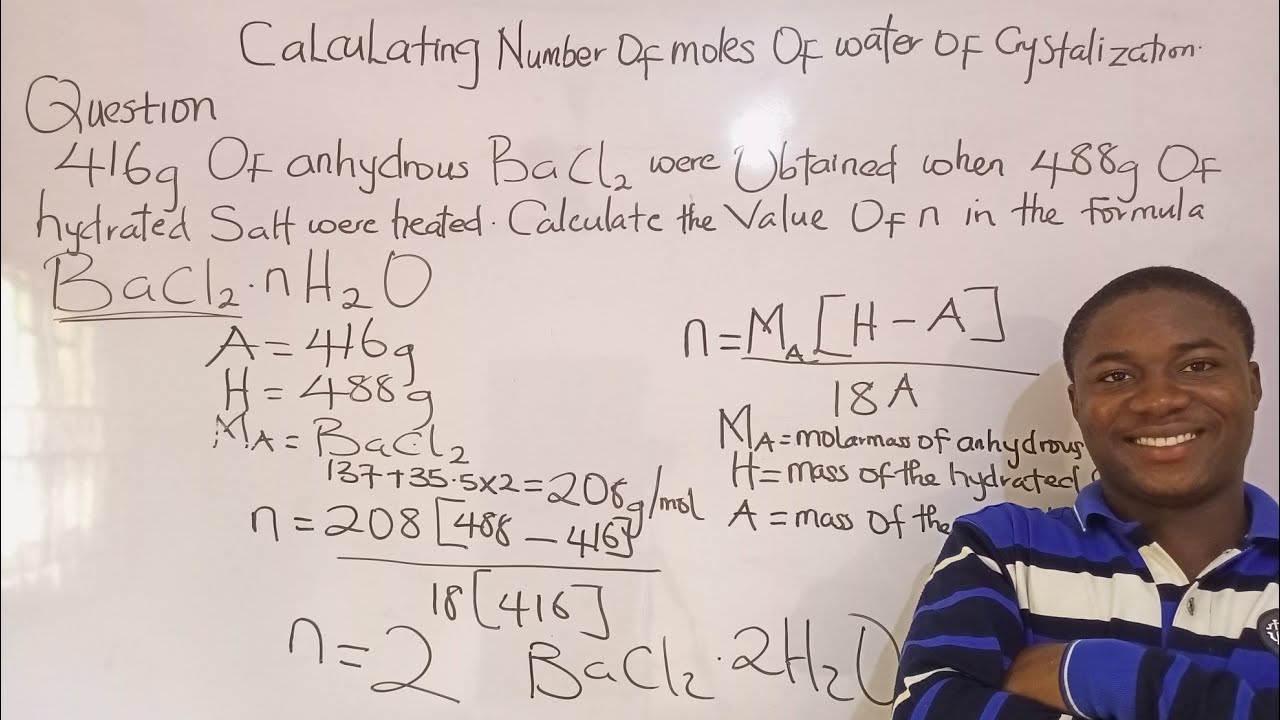 Calculating Number Of moles Of water Of Crystalization.
Question
416g Of anhydrous BaCl₂ were Obtained when 488g Of
hydrated Salt were heated. Calculate the Value Of n in the formula
BaCl₂·nH₂O
A = 416g
H = 488g
M_A = BaCl₂
137+35.5x2 = 208g/mol
n = 208[488 - 416]
18[416]
n = 2 BaCl₂·2H₂O
n = M_A[H - A]
18A
M_A = molarmass of anhydrous
H = mass of the hydrated
A = mass Of the